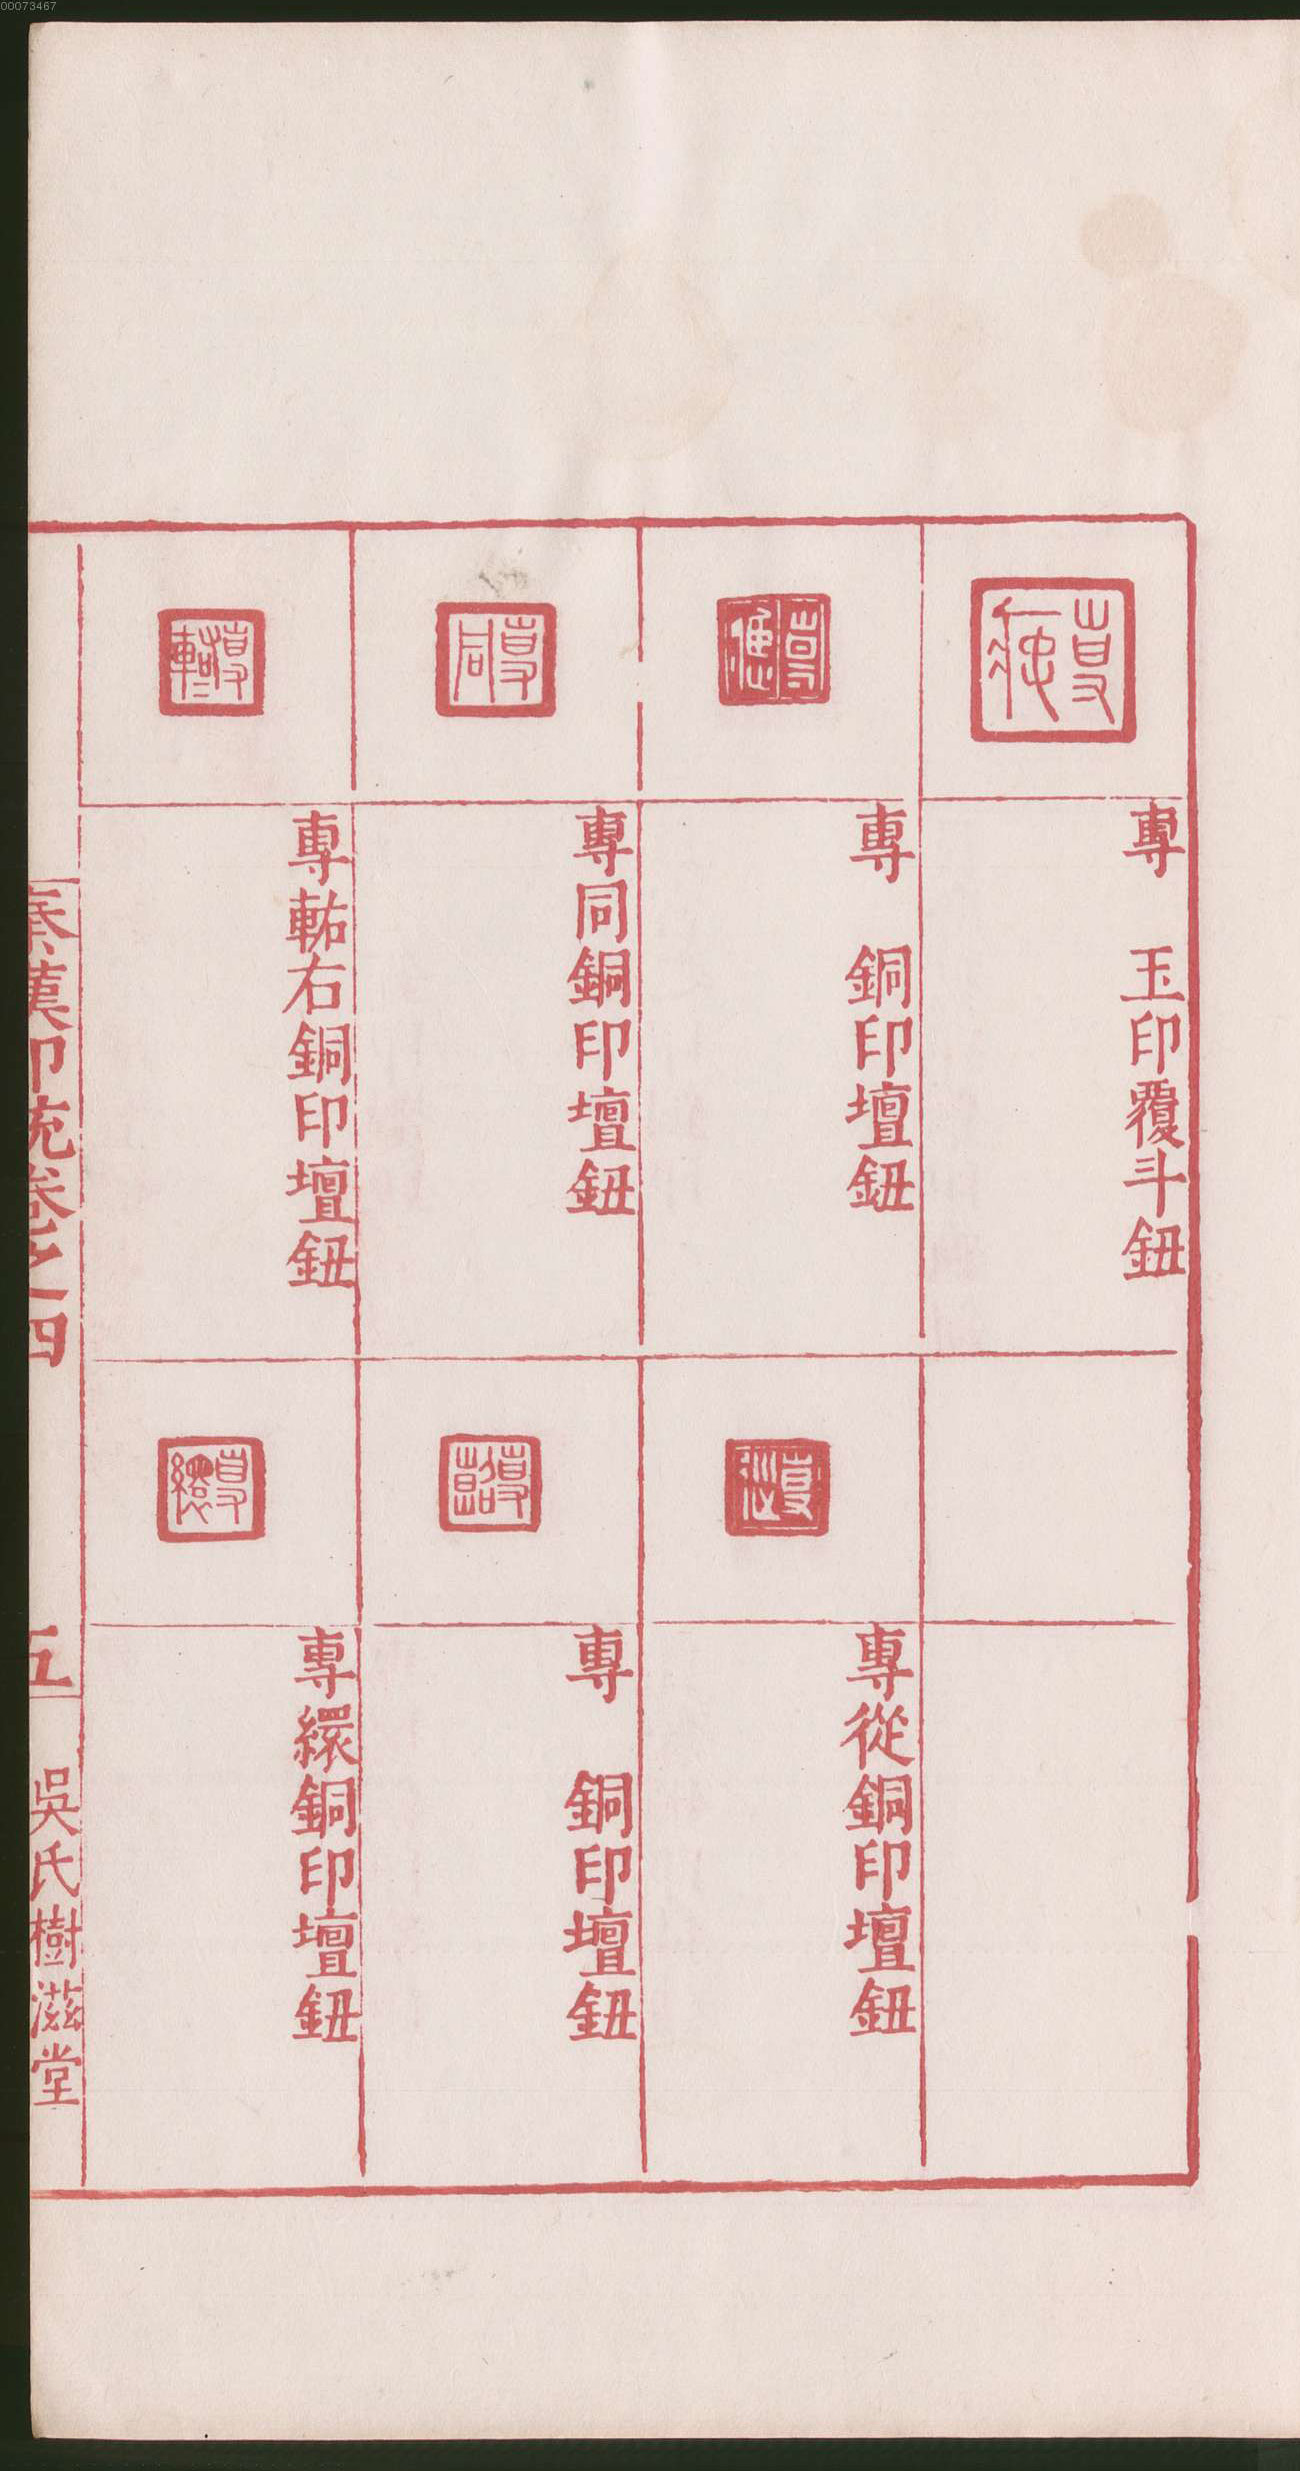 00073467
專　玉印覆斗鈕
專　銅印壇鈕
專從銅印壇鈕
專同銅印壇鈕
專　銅印壇鈕
專軲右銅印壇鈕
專繯銅印壇鈕
秦漢印統卷之四
五
吳氏樹滋堂